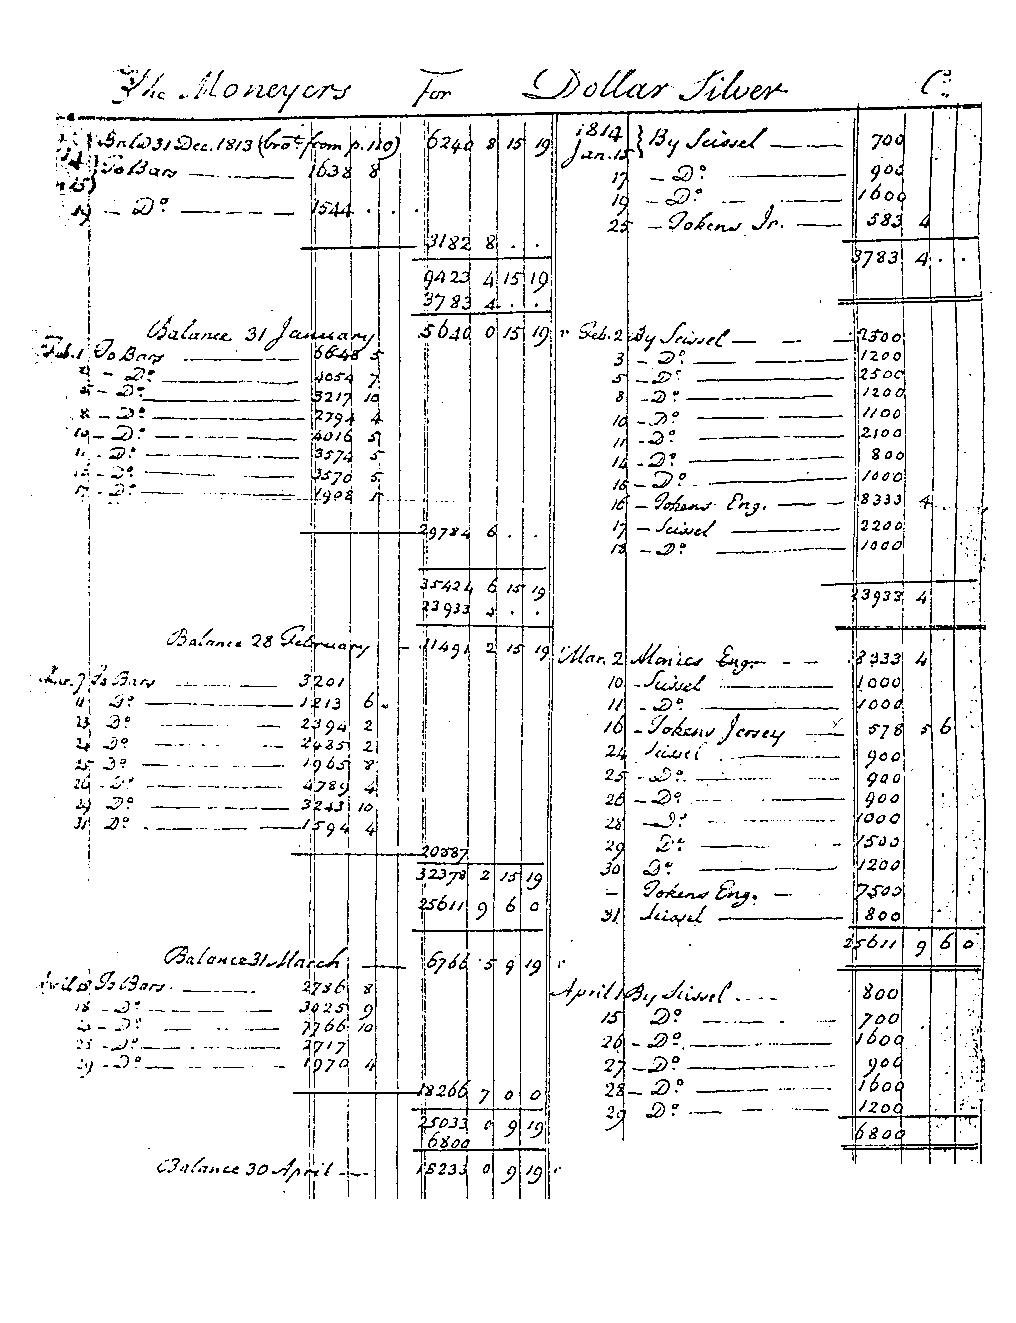 The Moneyers For Dollar Silver Cr.
Balce 31 Dec. 1813 (brot from p. 110) 6240 8 15 19
To Bars 1638 8
19 - Do 1544 . . .
3182 8 . .
9423 4 15 19
3783 4 . .
Balance 31 January 5640 0 15 19
Feb. 1 To Bars 6648 5
Do 4054 7
Do 3217 10
8 - Do 2794 4
10 - Do 4016 5
11 - Do 3574 5
Do 3570 5
17 - Do 1908 1
29784 6 . .
35424 6 15 19
23933 4 . .
Balance 28 February - 11491 2 15 19
Mar. 7 To Bars 3201
11 Do 1213 6
23 Do 2394 2
24 Do 2485 2
25 Do 1965 8
26 - Do 4789 4
29 Do 3243 10
31 Do 1594 4
20887
32378 2 15 19
25611 9 6 0
Balance 31 March 6766 5 9 19
April 13 To Bars 2786 8
18 - Do 3025 9
Do 7766 10
Do 2717
29 - Do 1970 4
18266 7 0 0
25033 0 9 19
6800
Balance 30 April 18233 0 9 19
1814
Jan. 15 } By Scissel 700
17 - Do 900
19 - Do 1600
25 - Tokens Ir. 583 4
3783 4 . .
Feb. 2 By Scissel 2500
3 - Do 1200
5 - Do 2500
8 - Do 1200
10 - Do 1100
11 - Do 2100
14 - Do 800
16 - Do 1000
16 - Tokens Eng. 8333 4
17 - Scissel 2200
18 - Do 1000
23933 4
Mar. 2 Monies Eng. 8333 4
10 - Scissel 1000
11 - Do 1000
16 - Tokens Jersey 578 5 6
24 Scissel 900
25 - Do 900
26 - Do 900
28 - Do 1000
29 Do 1500
30 Do 1200
- Tokens Eng. 7500
31 Scissel 800
25611 9 6 0
April 1 By Scissel 800
15 Do 700
26 - Do 1600
27 - Do 900
28 - Do 1600
29 Do 1200
6800